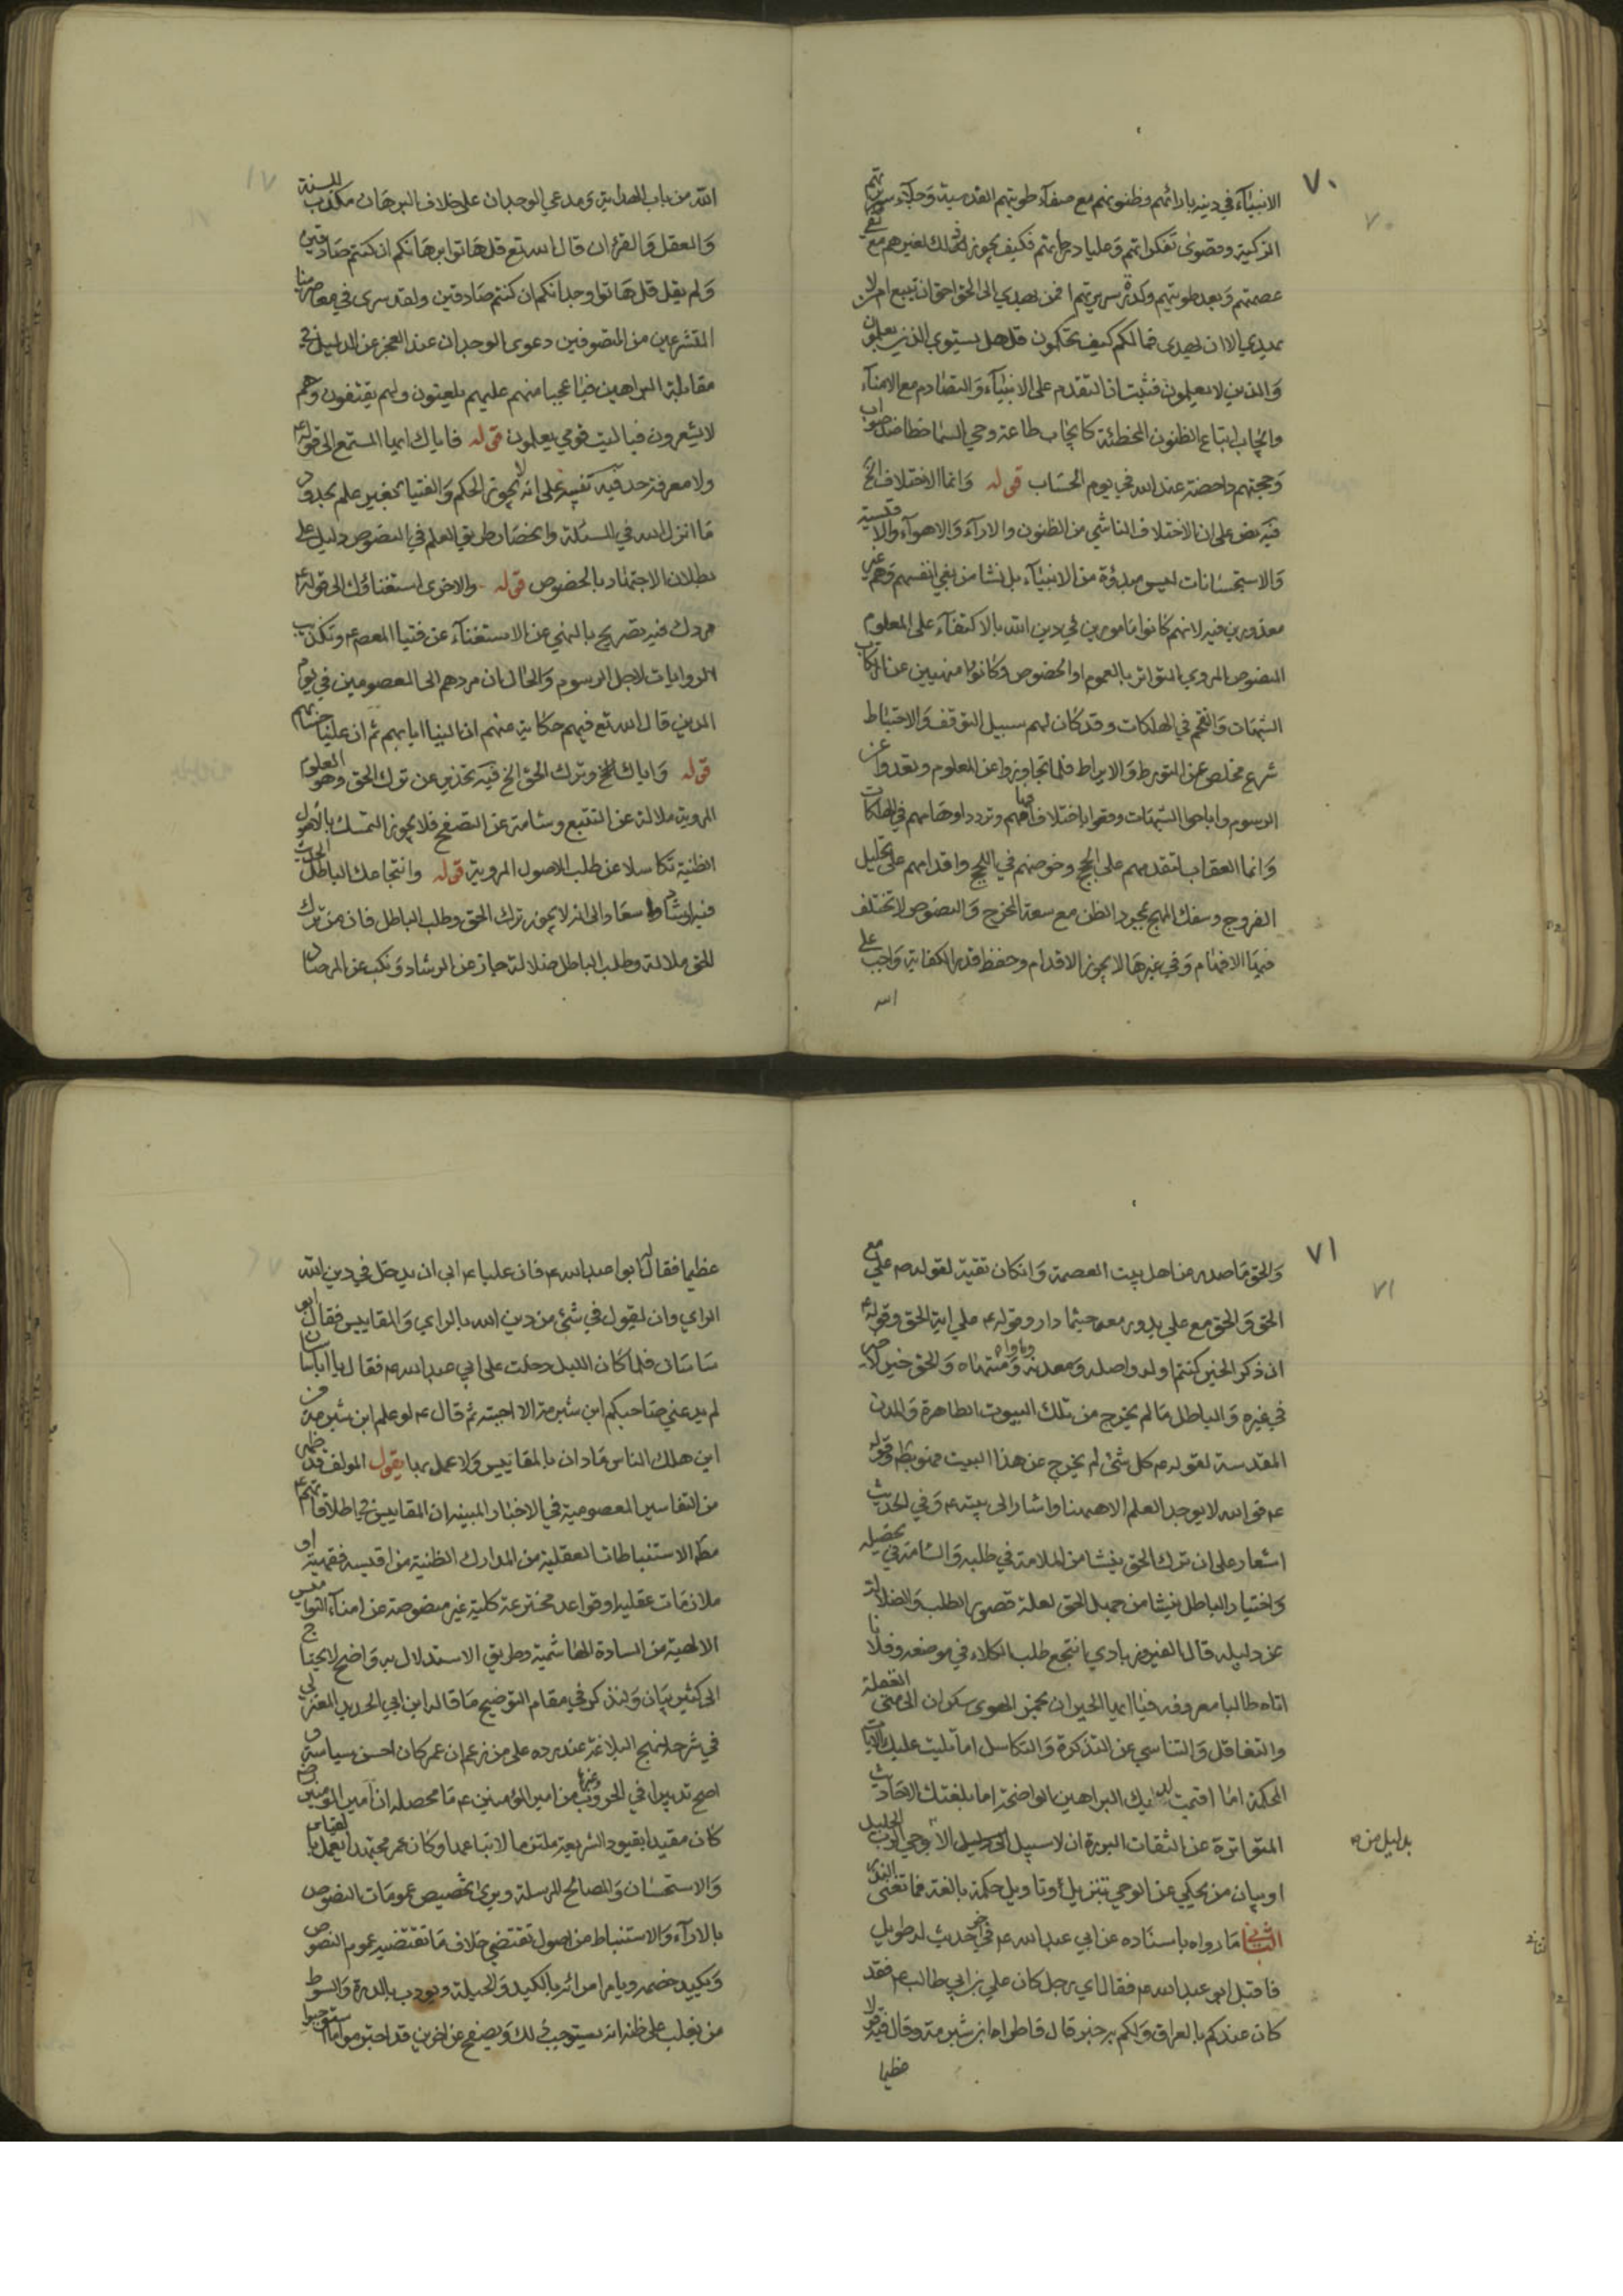 ٧٠
الانبياء في دينه بارائهم وظنونهم مع صفاء طويتهم القدسية وجلاء سريرتهم
الزكية وقصوى تفكراتهم وعليا درجاتهم فكيف يجوز ذلك لغيرهم مع
عصمتهم وبعد طويتهم وكدرة سريرتهم افمن يهدي الى الحق احق ان يتبع امن لا
يهدي الا ان يهدى فمالكم كيف تحكمون قل هل يستوي الذين يعلمون
والذين لا يعلمون فثبت ان التقدم على الانبياء والتصادم مع الامناء
وايجاب اتباع الظنون المخطئة كايجاب طاعة وحي السما خطا ضد صواب
وحجتهم داحضة عند الله في يوم الحساب قوله وانما الاختلاف الخ
فيه نص على ان الاختلاف الناشي من الظنون والاراء والاهواء والاقيسة
والاستحسانات ليس مبدؤه من الانبياء بل نشا من بغي انفسهم وهم غير
معذورين فيه لانهم كانوا مامورين في دين الله بالاكتفاء على المعلوم
المنصوص المروي المتواتر بالعموم او الخصوص وكانوا منهيين عن ارتكاب
الشبهات والتقحم في الهلكات وقد كان لهم سبيل التوقف والاحتياط
شرع مخلص عن التورط والايراط فلما تجاوزوا عن المعلوم وتعدوا عن
الرسوم واباحوا الشبهات وقعوا باختلاف افهامهم وتردد اوهامهم في الهلكات
وانما العقاب لتقدمهم على الحجج وخوضهم في اللجج واقدامهم على تحليل
الفروج وسفك المهج بمجرد الظن مع سعة المخرج والنصوص لا تختلف
فيها الافهام وفي غيرها لا يجوز الاقدام وحفظ قدر الكفاية واجب على
الله
الله من باب الهداية ومدعي الوجدان على خلاف البرهان مكذب للسنة
والعقل والقران قال الله تع قل هاتوا برهانكم ان كنتم صادقين
ولم يقل قل هاتوا وجدانكم ان كنتم صادقين ولقد سرى في معاصرينا
المتشرعين من المتصوفين دعوى الوجدان عند العجز عن الدليل في
مقابلة البراهين فيا عجبا منهم عليهم يلعنون ولهم يقتفون وهم
لا يشعرون فيا ليت قومي يعلمون قوله فاياك ايها المستمع الى قوله
ولا معرفة حد فيه تنبيه على انه لا يجوز الحكم والفتيا بغير علم بحدود
ما انزل الله في المسئلة وانحصار طريق العلم في النصوص دليل على
بطلان الاجتهاد بالخصوص قوله والاخرى استغناؤك الى قوله
مردك فيه تصريح بالنهي عن الاستغناء عن فتيا المعصوم وتكذيب
الروايات لاجل الرسوم والحال ان مردهم الى المعصومين في يوم
الدين قال الله تع فيهم حكاية عنهم ان الينا ايابهم ثم ان علينا حسابهم
قوله واياك الخ وترك الحق الخ فيه تحذير عن ترك الحق وهو العلوم
المروية ملالة عن التتبع وسئامة عن التصفح فلا يجوز التمسك بالاصول
الظنية تكاسلا عن طلب الاصول المروية قوله وانتجاعك الباطل الحديث
فيه ارشاد واسعاد الى انه لا يجوز ترك الحق وطلب الباطل فان من ترك
الحق ملالة وطلب الباطل ضلالة حاز عن الرشاد ونكب عن المرصاد
٧١
والحق ما صدر من اهل بيت العصمة وان كان تقية لقوله ص علي مع
الحق والحق مع علي يدور معه حيثما دار وقوله ع علي اية الحق وقوله
ان ذكر الخير كنتم اوله واصله ومعدنه وماواه ومنتهاه والحق خير لا خير
في غيره والباطل ما لم يخرج من تلك البيوت الطاهرة والمدن
المقدسة لقوله ع كل شئ لم يخرج عن هذا البيت فهو باطل وقوله
ع فو الله لا يوجد العلم الا ههنا واشار الى بيته ع وفي الحديث
اشعار على ان ترك الحق ينشا من الملامة في طلبه والسئامة في تحصيله
واختيار الباطل ينشا من جهل الحق لعلة قصور الطلب والضلالة
عن دليله قال الفيروزبادي انتجع طلب الكلاء في موضعه وفلانا
اتاه طالبا معروفه فيا ايها الحيران بخمر الهوى سكران الى متى الغفلة
والتغافل والتناسي عن التذكرة والتكاسل اما تليت عليك الايات
المحكمة اما اقيمت لديك البراهين الواضحة اما بلغتك الاحاديث
المتواترة عن الثقات البررة ان لا سبيل الى دليل الا بوحي الرب الجليل
بدليل من ه
او بيان من يحكي عن الوحي تنزيل او تاويل حكمة بالغة فما تغني النذر
الثاني ما رواه باسناده عن ابي عبد الله ع في اخر حديث له طويل
فاقبل ابو عبد الله ع فقال اي رجل كان علي بن ابي طالب ع فقد
كان عندكم بالعراق ولكم به خبر قال فاطراه ابن شبرمة وقال فيه قولا
عظيما
عظيما فقال له ابو عبد الله ع فان عليا ع ابى ان يدخل في دين الله
الراي وان يقول في شئ من دين الله بالراي والمقاييس فقال ابو
ساسان فلما كان الليل دخلت على ابي عبد الله ع فقال يا ابا ساسان
لم يدعني صاحبكم ابن شبرمة الا اجبته ثم قال ع لو علم ابن شبرمة من
اين هلك الناس ما دان بالمقاييس ولا عمل بها يقول المولف قد ظهر
من التفاسير المعصومية في الاخبار المبينة ان المقاييس في اطلاقاتهم ع
مطلق الاستنباطات العقلية من المدارك الظنية من اقيسه فقهية او
ملازمات عقلية او قواعد مخترعة كلية غير منصوصة عن امناء النواميس
الالهية من السادة الهاشمية وطريق الاستدلال به واضح لا يحتاج
الى كثير بيان ولنذكر في مقام التوضيح ما قاله ابن ابي الحديد المعتزلي
في شرحه لنهج البلاغة عند رده على من زعم ان عمر كان احسن سياسة و
اصح تدبيرا في الحروب وغيرها من امير المؤمنين ع ما محصله ان امير المؤمنين ع
كان مقيدا بقيود الشريعة ملتزما لاتباعها وكان عمر مجتهدا يعمل بالقياس
والاستحسان والمصالح المرسلة ويرى تخصيص عمومات النصوص
بالاراء والاستنباط من اصول تقتضي خلاف ما تقتضيه عموم النصوص
ويكيد خصمه ويامر امرائه بالكيد والحيلة ويودب بالدرة والسوط
من يغلب على ظنه انه يستوجب ذلك ويصفح عن اخرين قد اجترموا ما استوجبوا